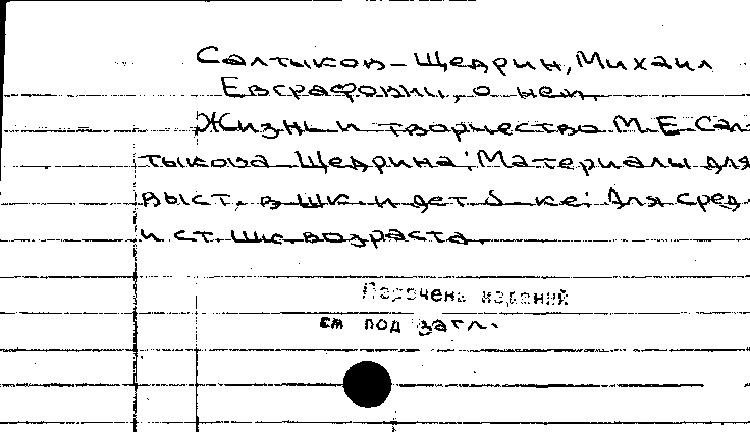 Салтыков-Щедрин, Михаил
Евграфович, о нем.
Жизнь и творчество М.Е. Сал-
тыкова-Щедрина: Материалы для
выст. в шк. и дет. б-ке: Для сред.
и ст. шк. возраста.
Перечень изданий
см под загл.